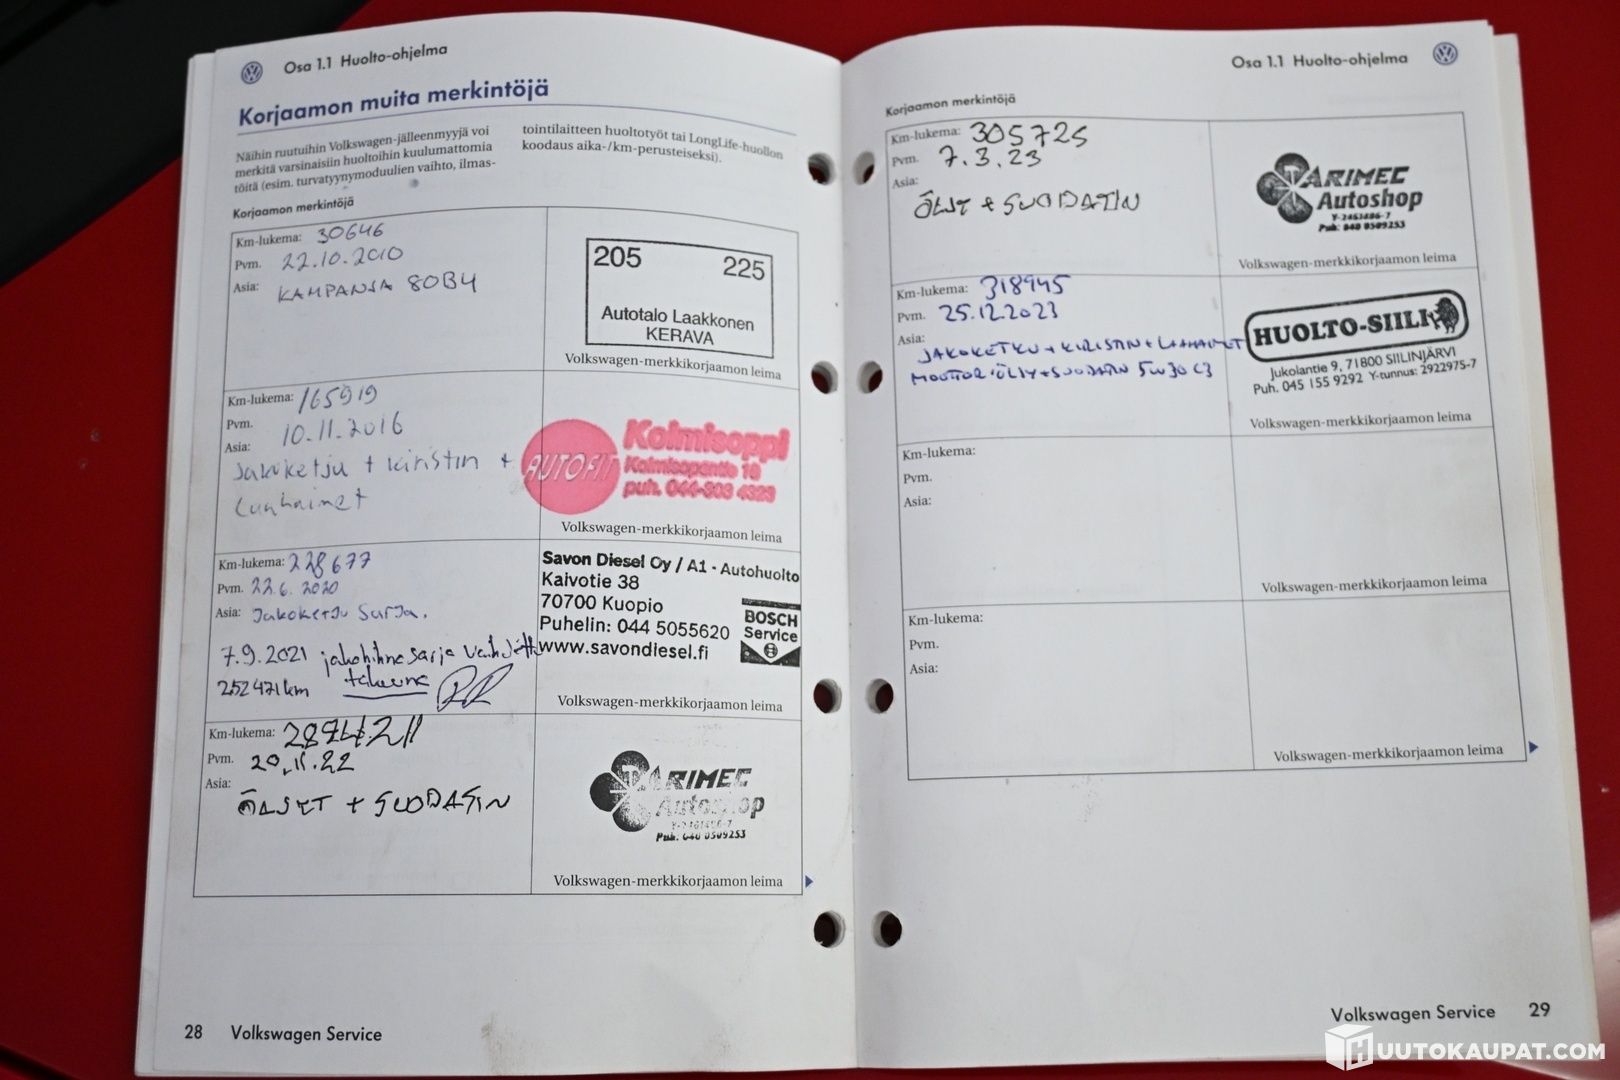 Osa 1.1 Huolto-ohjelma
Korjaamon muita merkintöjä
Näihin ruutuihin Volkswagen-jälleenmyyjä voi
merkitä varsinaisiin huoltoihin kuulumattomia
töitä (esim. turvatyynymoduulien vaihto, ilmas-
tointilaitteen huoltotyöt tai LongLife-huollon
koodaus aika-/km-perusteiseksi).
Korjaamon merkintöjä
Km-lukema: 30646
Pvm. 22.10.2010
Asia: KAMPANJA 80B4
205 225
Autotalo Laakkonen
KERAVA
Volkswagen-merkkikorjaamon leima
Km-lukema: 165919
Pvm. 10.11.2016
Asia:
Jakoketju + kiristin +
Laahaimet
AUTOFIT
Kolmisoppi
Kolmisopentie 18
puh. 044-303 4323
Volkswagen-merkkikorjaamon leima
Km-lukema: 228677
Pvm. 22.6.2020
Asia: Jakoketju sarja.
7.9.2021 jakohihnasarja vaihdettu
252471km takuuna
Savon Diesel Oy / A1 - Autohuolto
Kaivotie 38
70700 Kuopio
Puhelin: 044 5055620
www.savondiesel.fi
BOSCH
Service
Volkswagen-merkkikorjaamon leima
Km-lukema:
Pvm. 20.11.22
Asia:
ÖLJYT + SUODATIN
TARIMEC
Autoshop
Y-2461486-7
Puh: 040 0509253
Volkswagen-merkkikorjaamon leima
28 Volkswagen Service
Osa 1.1 Huolto-ohjelma
Korjaamon merkintöjä
Km-lukema: 305725
Pvm. 7.3.23
Asia:
ÖLJYT + SUODATIN
TARIMEC
Autoshop
Y-2461486-7
Puh: 040 0509253
Volkswagen-merkkikorjaamon leima
Km-lukema: 318945
Pvm. 25.12.2023
Asia:
JAKOKETJU + KIRISTIN + LAAHAIMET
MOOTTORIÖLJY + SUODATIN 5W30 C3
HUOLTO-SIILI
Jukolantie 9, 71800 SIILINJÄRVI
Puh. 045 155 9292 Y-tunnus: 2922975-7
Volkswagen-merkkikorjaamon leima
Km-lukema:
Pvm.
Asia:
Volkswagen-merkkikorjaamon leima
Km-lukema:
Pvm.
Asia:
Volkswagen-merkkikorjaamon leima
Volkswagen Service 29
HUUTOKAUPAT.COM